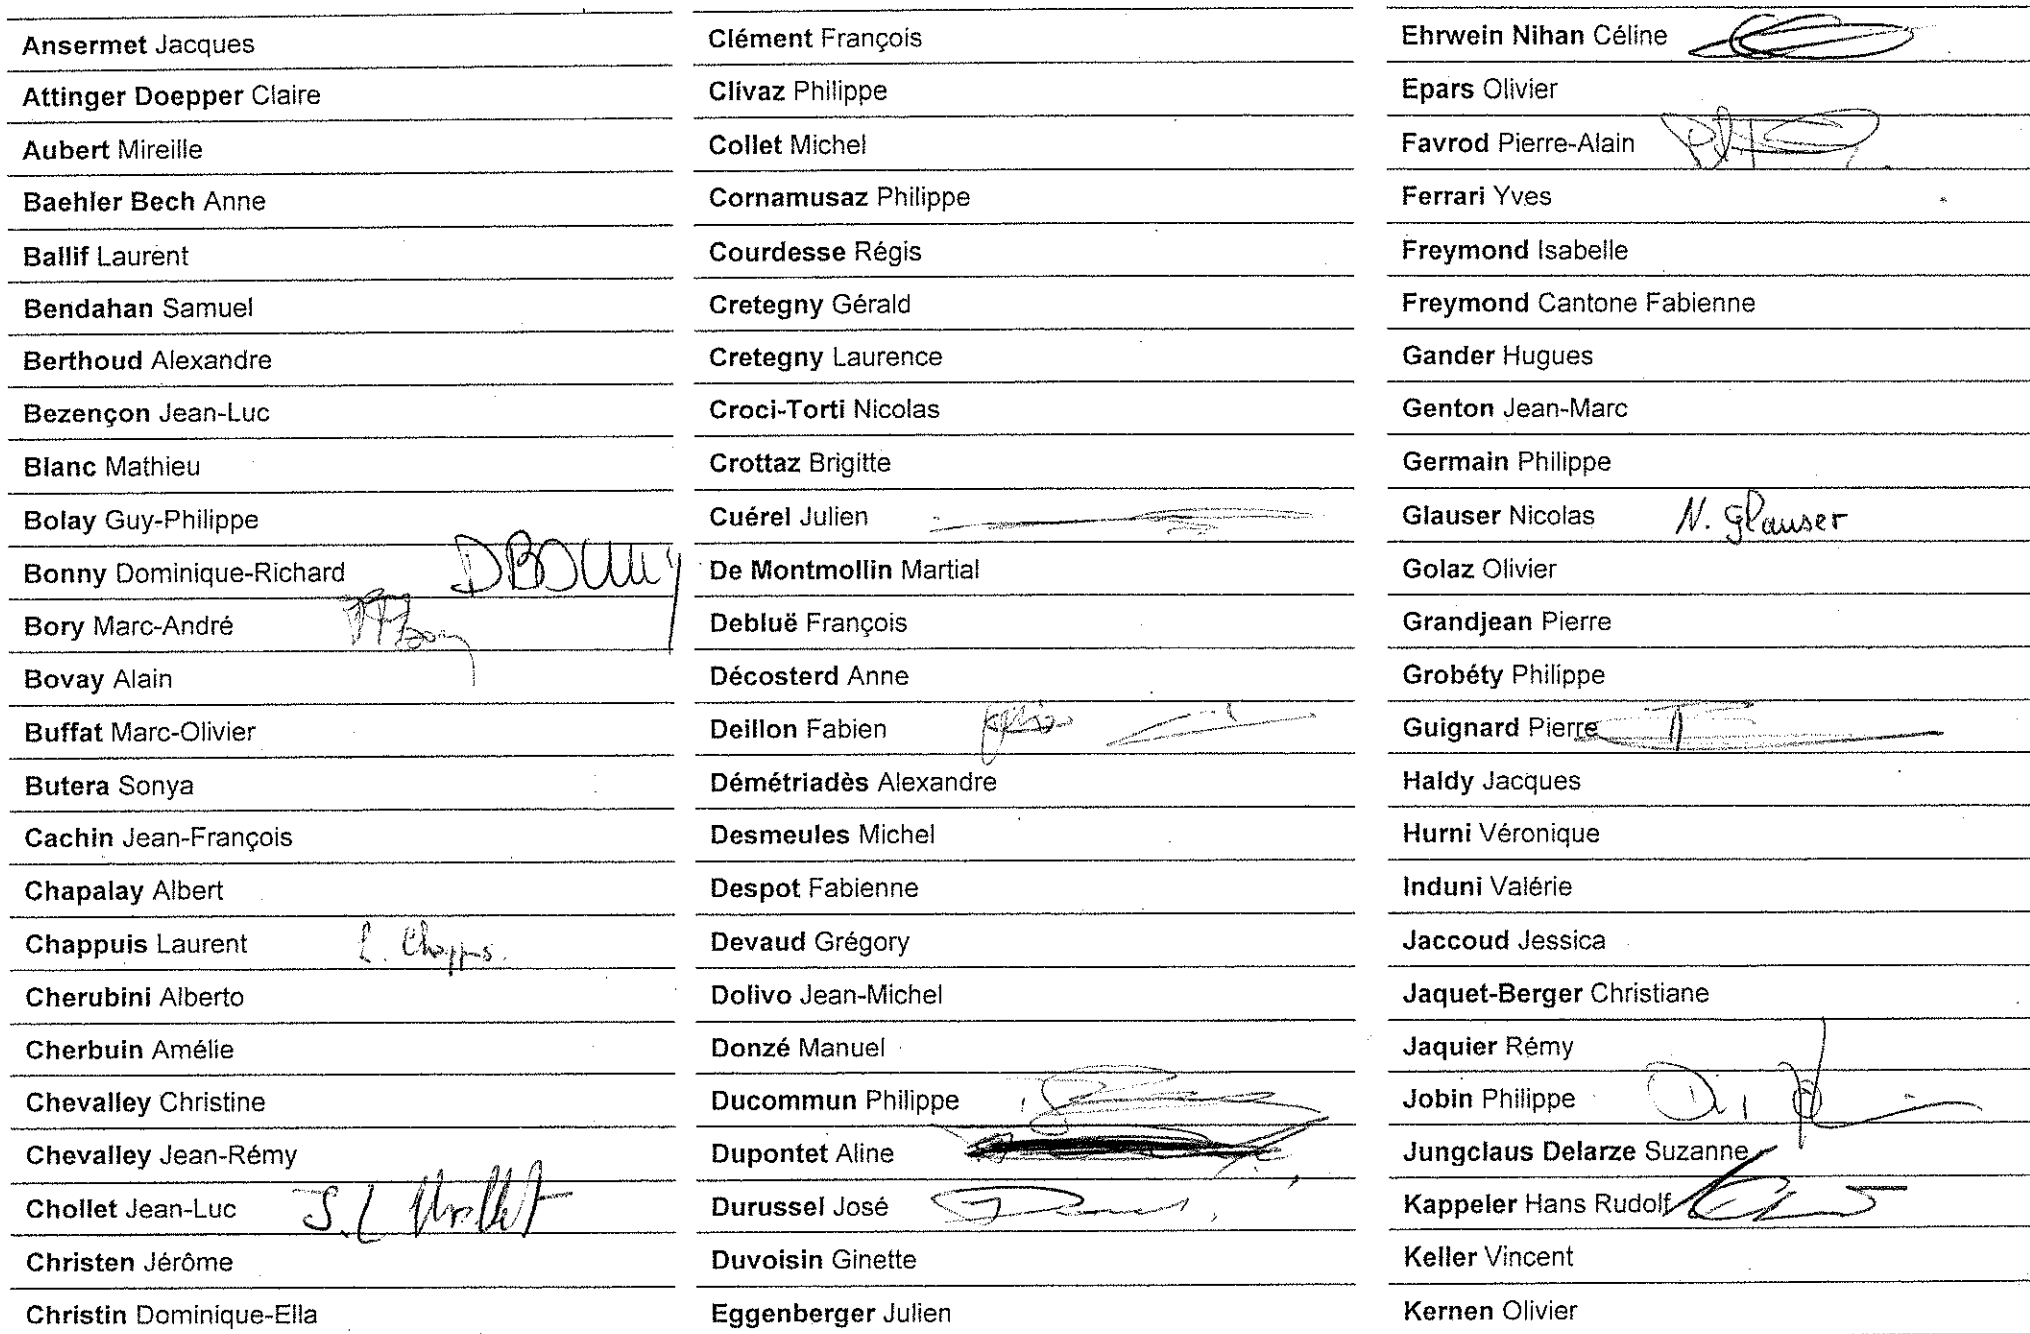 Ansermet Jacques
Attinger Doepper Claire
Aubert Mireille
Baehler Bech Anne
Ballif Laurent
Bendahan Samuel
Berthoud Alexandre
Bezençon Jean-Luc
Blanc Mathieu
Bolay Guy-Philippe
Bonny Dominique-Richard DBonny
Bory Marc-André
Bovay Alain
Buffat Marc-Olivier
Butera Sonya
Cachin Jean-François
Chapalay Albert
Chappuis Laurent
Cherubini Alberto
Cherbuin Amélie
Chevalley Christine
Chevalley Jean-Rémy
Chollet Jean-Luc J.L Chollet
Christen Jérôme
Christin Dominique-Ella
Clément François
Clivaz Philippe
Collet Michel
Cornamusaz Philippe
Courdesse Régis
Cretegny Gérald
Cretegny Laurence
Croci-Torti Nicolas
Crottaz Brigitte
Cuérel Julien
De Montmollin Martial
Debluë François
Décosterd Anne
Deillon Fabien
Démétriadès Alexandre
Desmeules Michel
Despot Fabienne
Devaud Grégory
Dolivo Jean-Michel
Donzé Manuel
Ducommun Philippe
Dupontet Aline
Durussel José
Duvoisin Ginette
Eggenberger Julien
Ehrwein Nihan Céline
Epars Olivier
Favrod Pierre-Alain
Ferrari Yves
Freymond Isabelle
Freymond Cantone Fabienne
Gander Hugues
Genton Jean-Marc
Germain Philippe
Glauser Nicolas N. Glauser
Golaz Olivier
Grandjean Pierre
Grobéty Philippe
Guignard Pierre
Haldy Jacques
Hurni Véronique
Induni Valérie
Jaccoud Jessica
Jaquet-Berger Christiane
Jaquier Rémy
Jobin Philippe
Jungclaus Delarze Suzanne
Kappeler Hans Rudolf
Keller Vincent
Kernen Olivier